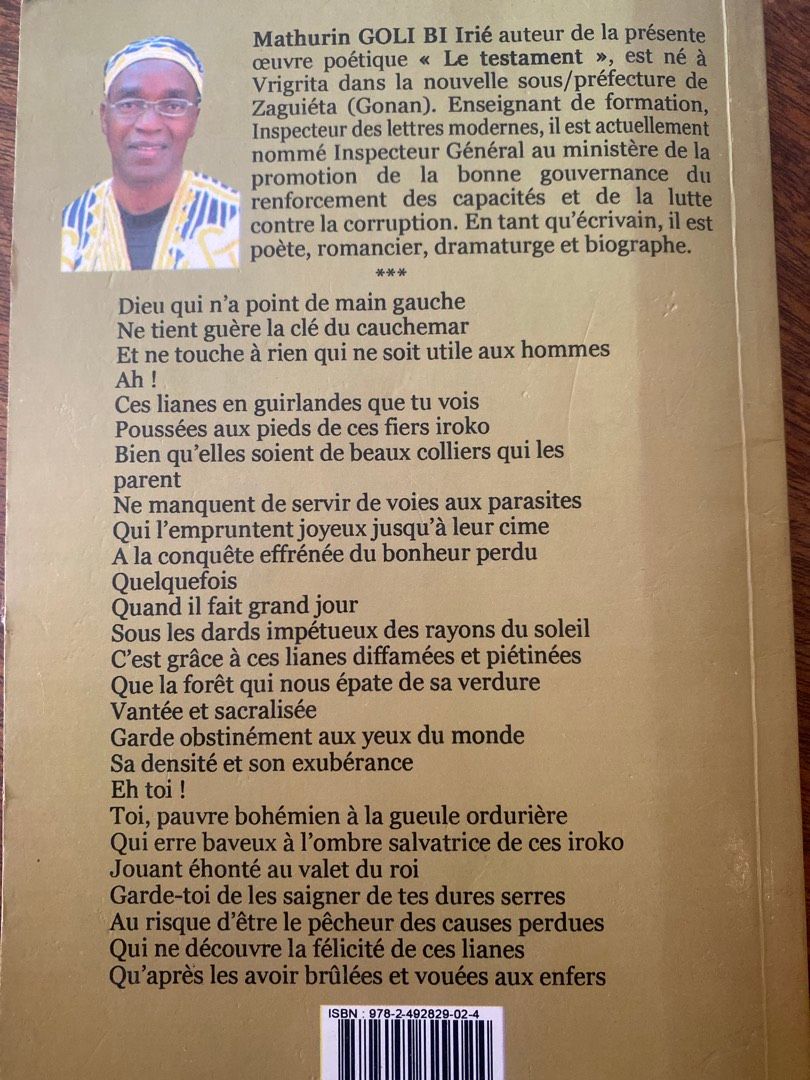 Mathurin GOLI BI Irié auteur de la présente
œuvre poétique « Le testament », est né à
Vrigrita dans la nouvelle sous/préfecture de
Zaguiéta (Gonan). Enseignant de formation,
Inspecteur des lettres modernes, il est actuellement
nommé Inspecteur Général au ministère de la
promotion de la bonne gouvernance du
renforcement des capacités et de la lutte
contre la corruption. En tant qu'écrivain, il est
poète, romancier, dramaturge et biographe.
***
Dieu qui n'a point de main gauche
Ne tient guère la clé du cauchemar
Et ne touche à rien qui ne soit utile aux hommes
Ah !
Ces lianes en guirlandes que tu vois
Poussées aux pieds de ces fiers iroko
Bien qu'elles soient de beaux colliers qui les
parent
Ne manquent de servir de voies aux parasites
Qui l'empruntent joyeux jusqu'à leur cime
A la conquête effrénée du bonheur perdu
Quelquefois
Quand il fait grand jour
Sous les dards impétueux des rayons du soleil
C'est grâce à ces lianes diffamées et piétinées
Que la forêt qui nous épate de sa verdure
Vantée et sacralisée
Garde obstinément aux yeux du monde
Sa densité et son exubérance
Eh toi !
Toi, pauvre bohémien à la gueule ordurière
Qui erre baveux à l'ombre salvatrice de ces iroko
Jouant éhonté au valet du roi
Garde-toi de les saigner de tes dures serres
Au risque d'être le pêcheur des causes perdues
Qui ne découvre la félicité de ces lianes
Qu'après les avoir brûlées et vouées aux enfers
ISBN : 978-2-492829-02-4